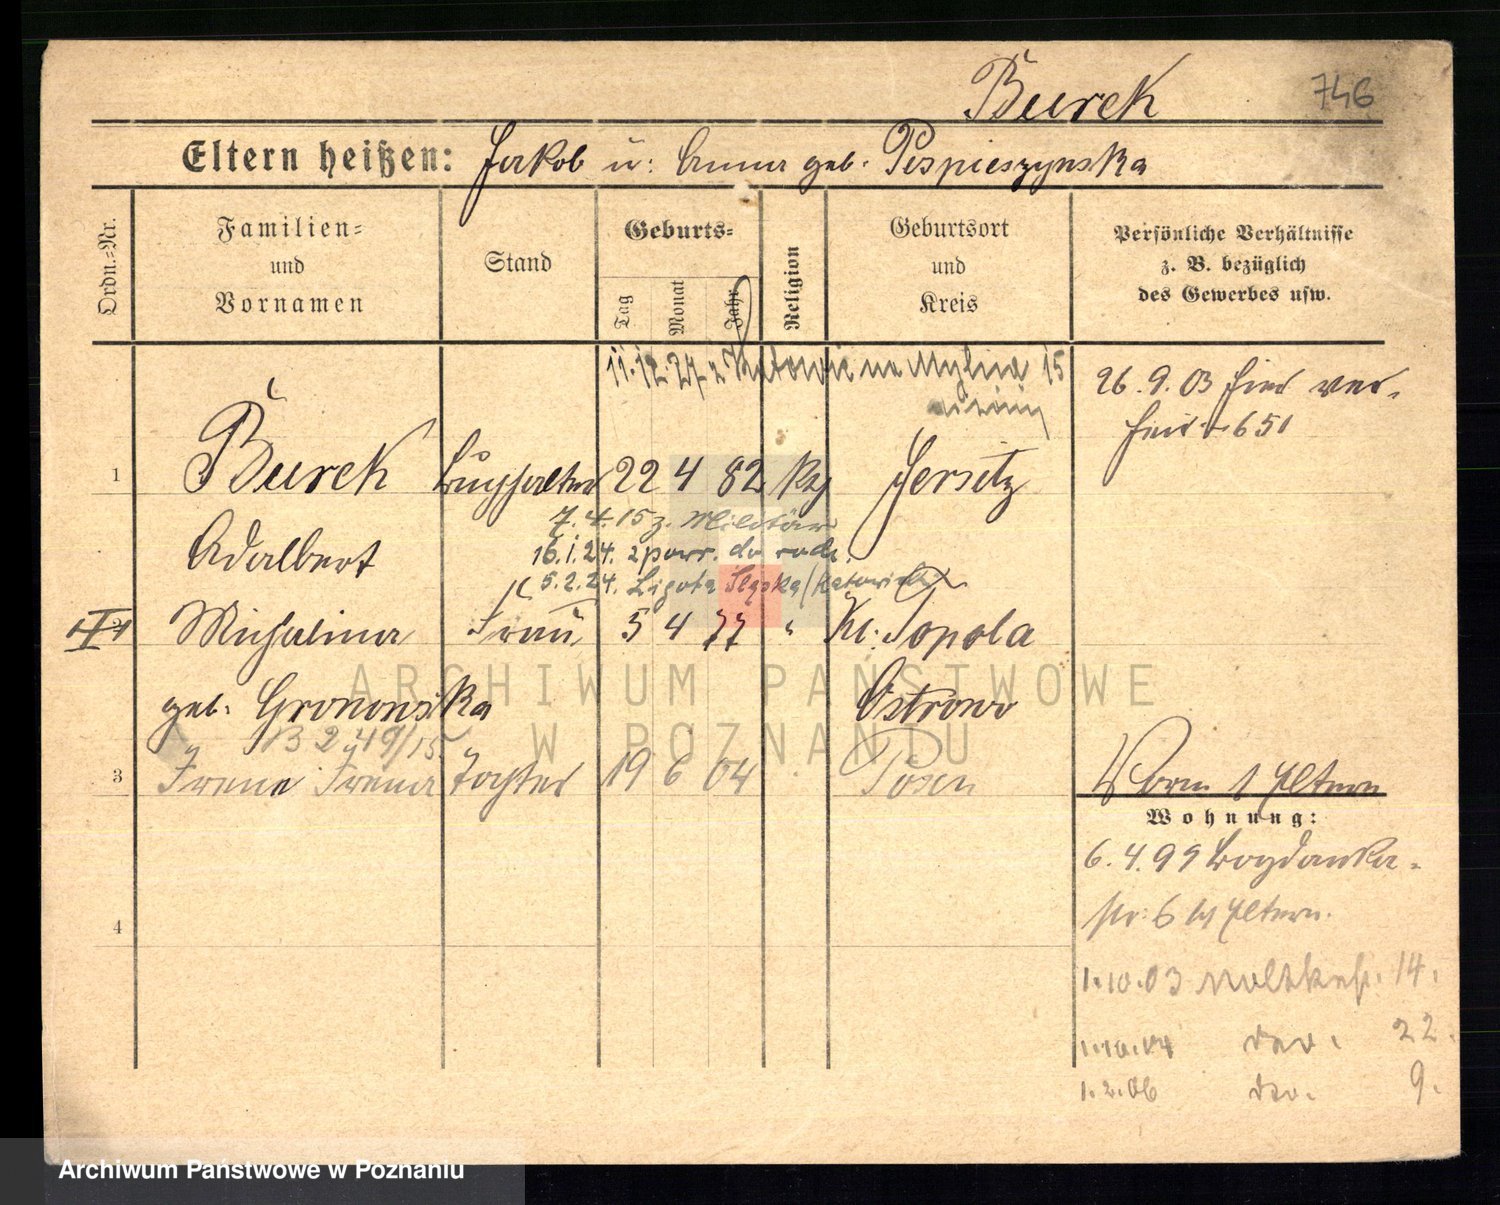 Burek 746
Eltern heißen: Jakob u: Anna geb. Pospieszynska
Ordn.-Nr.
Familien- und Vornamen
Stand
Geburts-
Tag Monat Jahr
Religion
Geburtsort und Kreis
Persönliche Verhältnisse z. B. bezüglich des Gewerbes usw.
11.12.27 z Katowic na 15
26.9.03 hier ver-
heir 651
1 Burek Buchhalter 22 4 82 Kg Jersitz
7.4.15 z. Militär
Adalbert
16.1.24. z powr. do rodz.
5.2.24. Ligota Śląska (Katowice)
2 Michalina Frau 5 4 77 " Kl: Topola
geb. Gronowska Ostrowo
B 249/15
3 Irene Irena Tochter 19 6 04 Posen
Eltern
Wohnung:
6.4.99 Bogdanka-
str: 6 bei Eltern.
4
1.10.03 Moltkestr. 14.
1.10.04 22.
1.2.06 9.
ARCHIWUM PAŃSTWOWE
W POZNANIU
Archiwum Państwowe w Poznaniu